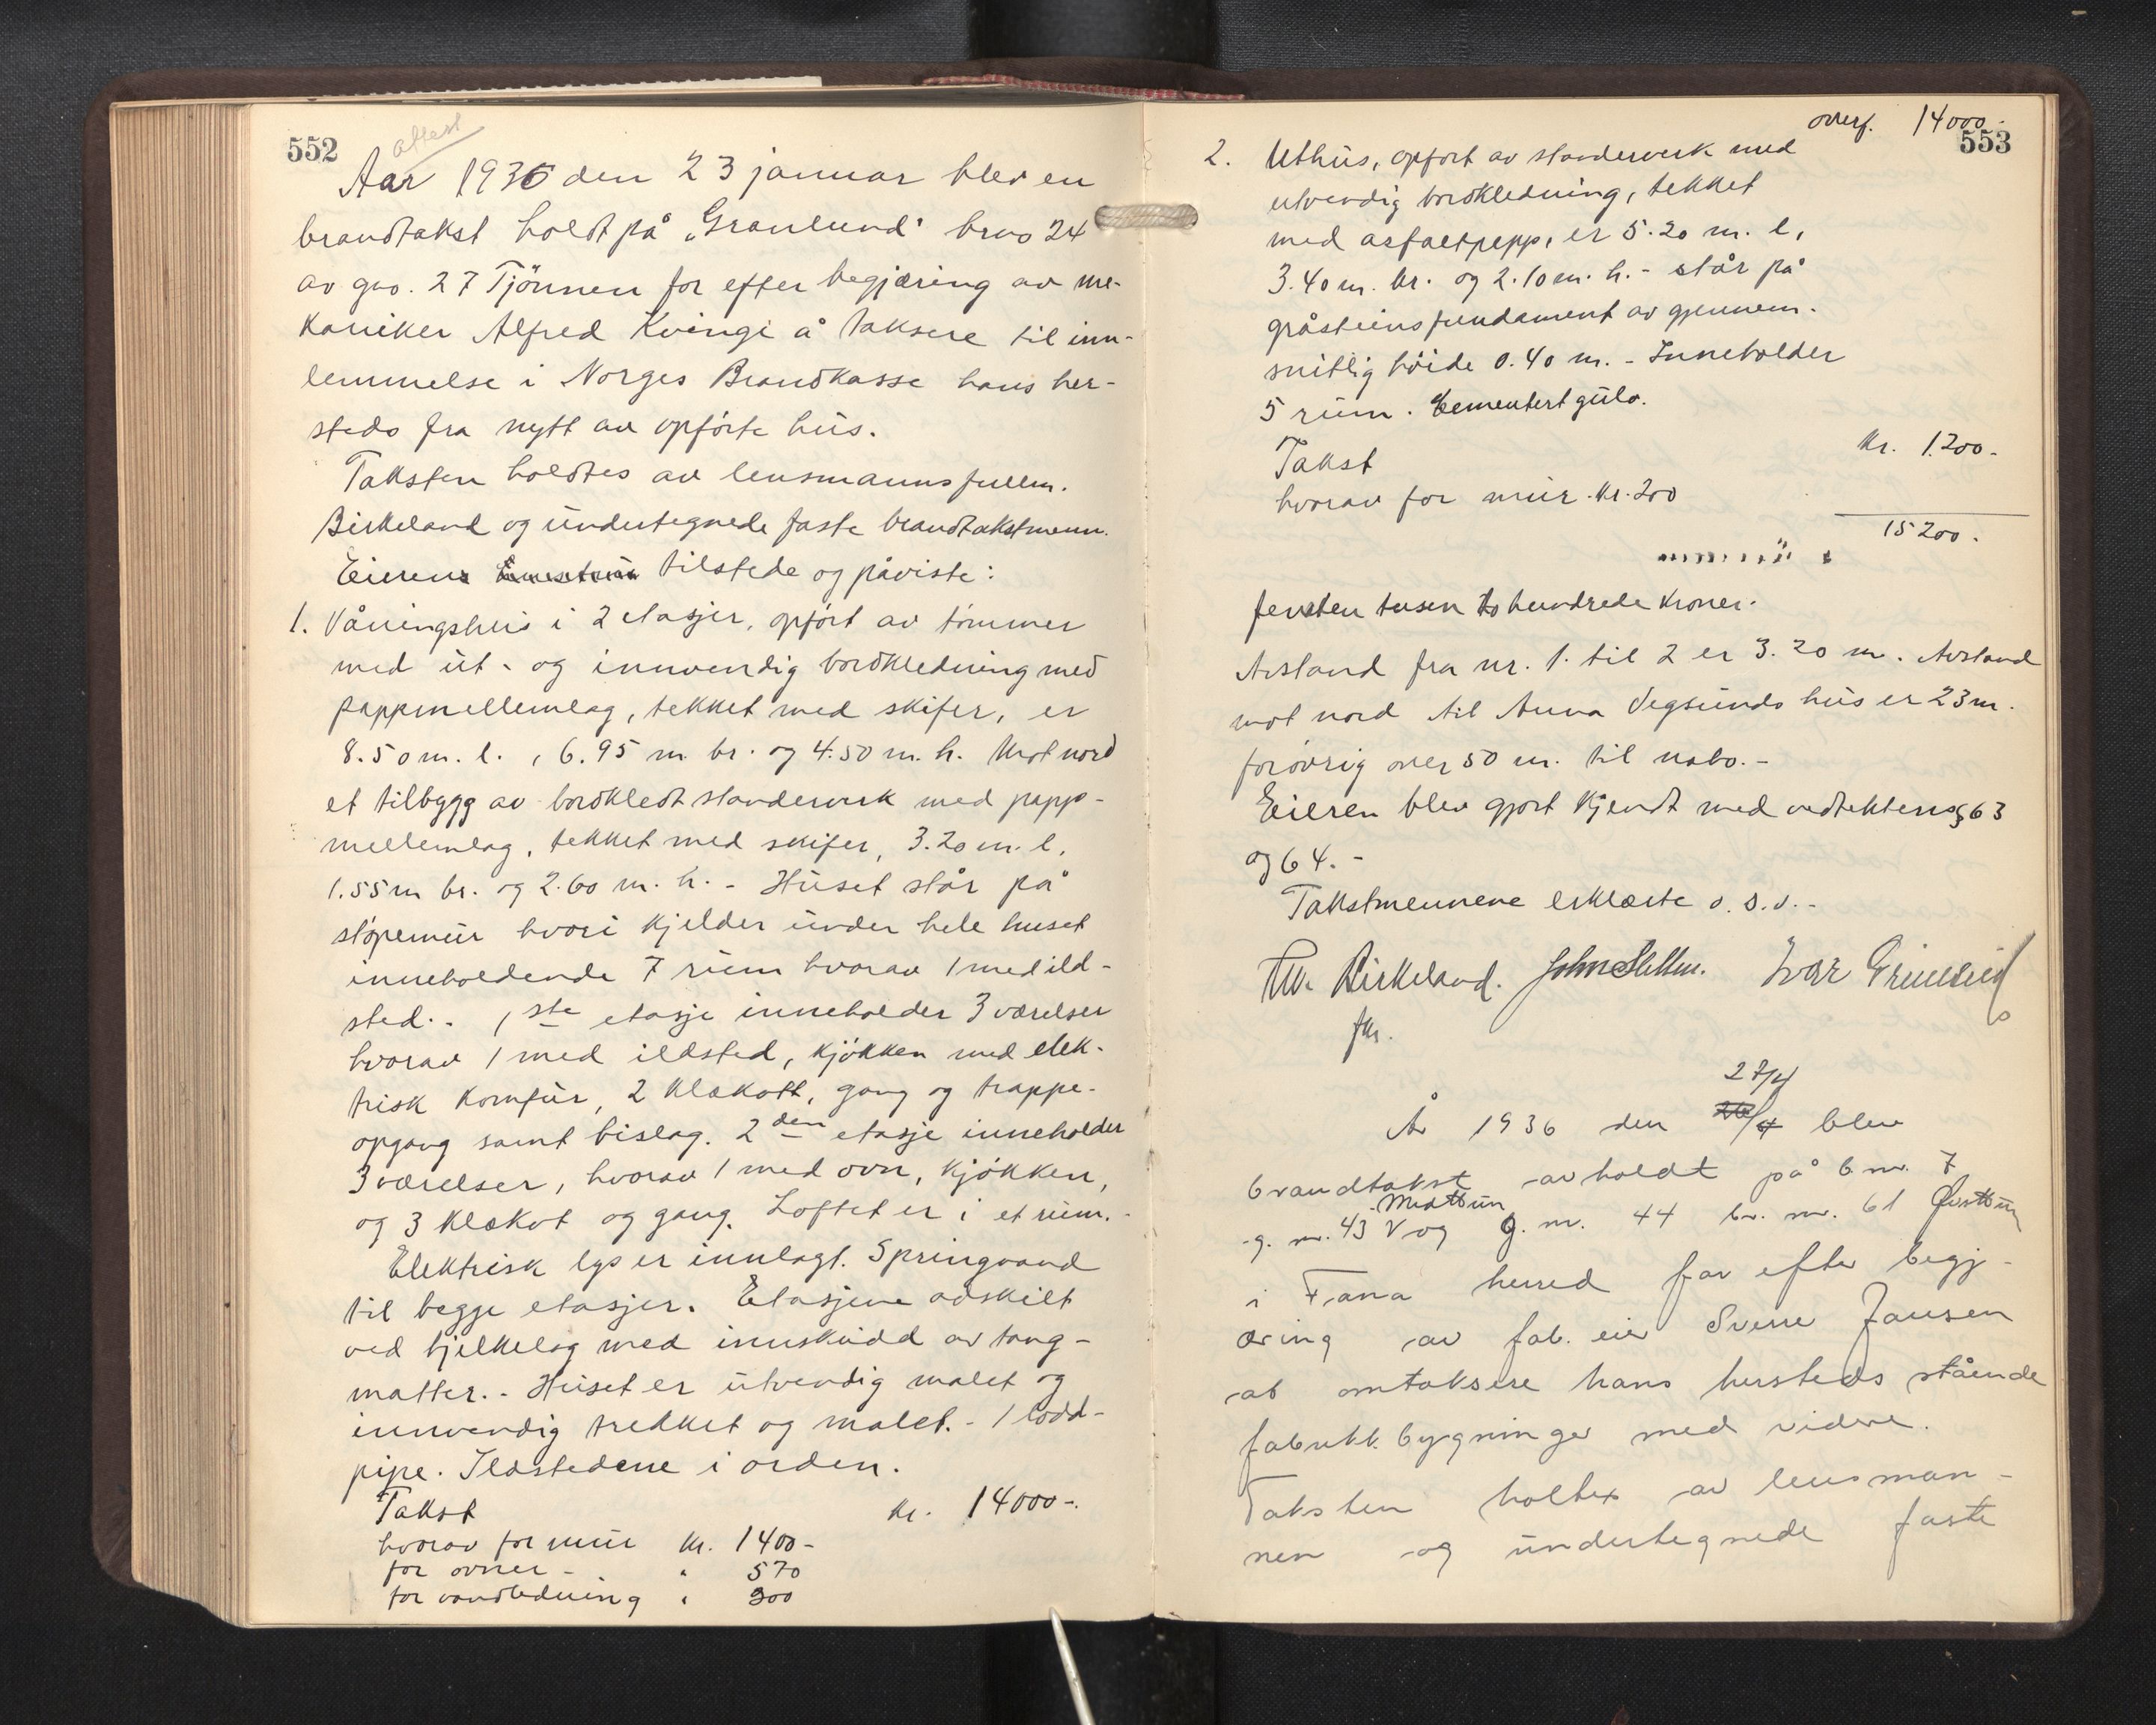 552
attest
Aar 1936 den 23 januar blev en
brandtakst holdt på „Granlund" brno 24
av gno. 27 Tjönnen for efter begjæring av me-
kaniker Alfred Kvinge å taksere til inn-
lemmelse i Norges Brandkasse hans her-
steds fra nytt av opförte hus.
Taksten holdtes av lensmannsfullm.
Birkeland og undertegnede faste brandtakstmenn.
Eieren tilstede og påviste:
1. Våningshus i 2 etasjer, opfört av tömmer
med ut- og innvendig bordkledning med
pappmellemlag, tekket med skifer, er
8.50 m. l., 6.95 m. br. og 4.50 m. h. Mot nord
et tilbygg av bordkledt standerverk med papp-
mellemlag, tekket med skifer, 3.20 m. l.
1.55 m br. og 2.60 m. h. - Huset står på
stöpemur hvori kjelder under hele huset
inneholdende 7 rum hvorav 1 med ild-
sted. - 1ste etasje inneholder 3 værelser
hvorav 1 med ildsted, kjökken med elek-
trisk komfur, 2 klækott, gang og trappe-
opgang samt bislag. 2den etasje inneholder
3 værelser, hvorav 1 med ovn, kjökken,
og 3 klækot og gang. Loftet er i et rum. -
Elektrisk lys er innlagt. Springvand
til begge etasjer. Etasjene adskilt
ved bjelkelag med innskudd av tang-
matter. - Huset er utvendig malet og
innvendig trekket og malet. - 1 lodd-
pipe. Ildstedene i orden.
Takst kr. 14000-.
hvorav for mur kr. 1400-
for ovner - " 570
for vandledning " 300
overf. 14000.-
553
2. Uthus, opfört av standerverk med
utvendig bordkledning, tekket
med asfaltpapp, er 5.20 m. l,
3.40 m. br. og 2.10 m. h. - står på
gråsteinsfundament av gjennem-
snitlig höide 0.40 m. - Inneholder
5 rum. Cementert gulv.
Takst kr. 1200.-
hvorav for mur kr. 200
15200.
femten tusen to hundrede kroner.
Avstand fra nr. 1. til 2 er 3.20 m. Avstand
mot nord til Anna Vegsunds hus er 23 m.
forövrig over 50 m. til nabo. -
Eieren blev gjort kjendt med vedtektens § 63
og 64. -
Takstmennene erklærte o. s. v. -
Birkeland. John Ivar Grimseid
fm.
27/4
År 1936 den 26/4 blev
brandtakst avholdt på bnr. 7
Midttun
g. nr. 43 V og g. nr. 44 br. nr. 61 Øvsttun
i Fana herred for efter begj-
æring av fab. eier Sverre Jansen
at omtaksere hans hersteds stående
fabrikk bygninger med videre.
Taksten holtes av lensman-
nen og undertegnede faste